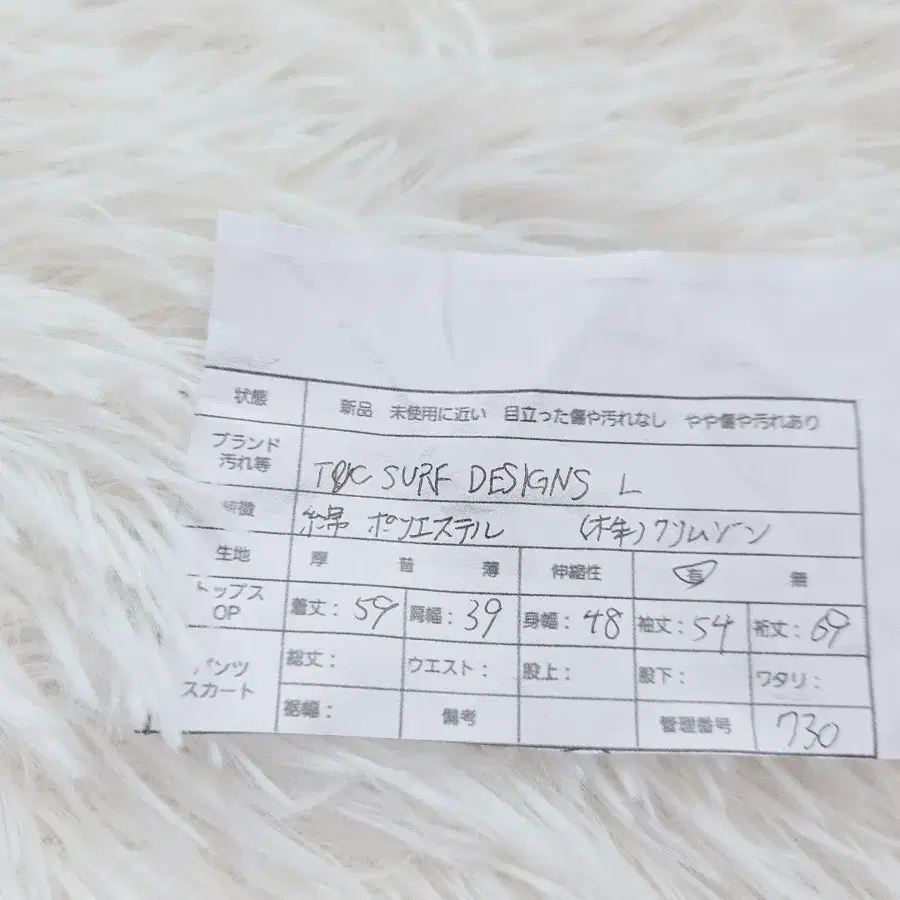 状態 新品 未使用に近い 目立った傷や汚れなし やや傷や汚れあり
ブランド
汚れ等
T&C SURF DESIGNS L
特徴 綿 ポリエステル (株)クリムゾン
生地 厚 普 薄 伸縮性 有 無
トップス
OP
着丈: 59 肩幅: 39 身幅: 48 袖丈: 54 裄丈: 69
パンツ
スカート
総丈: ウエスト: 股上: 股下: ワタリ:
裾幅: 備考 管理番号 730